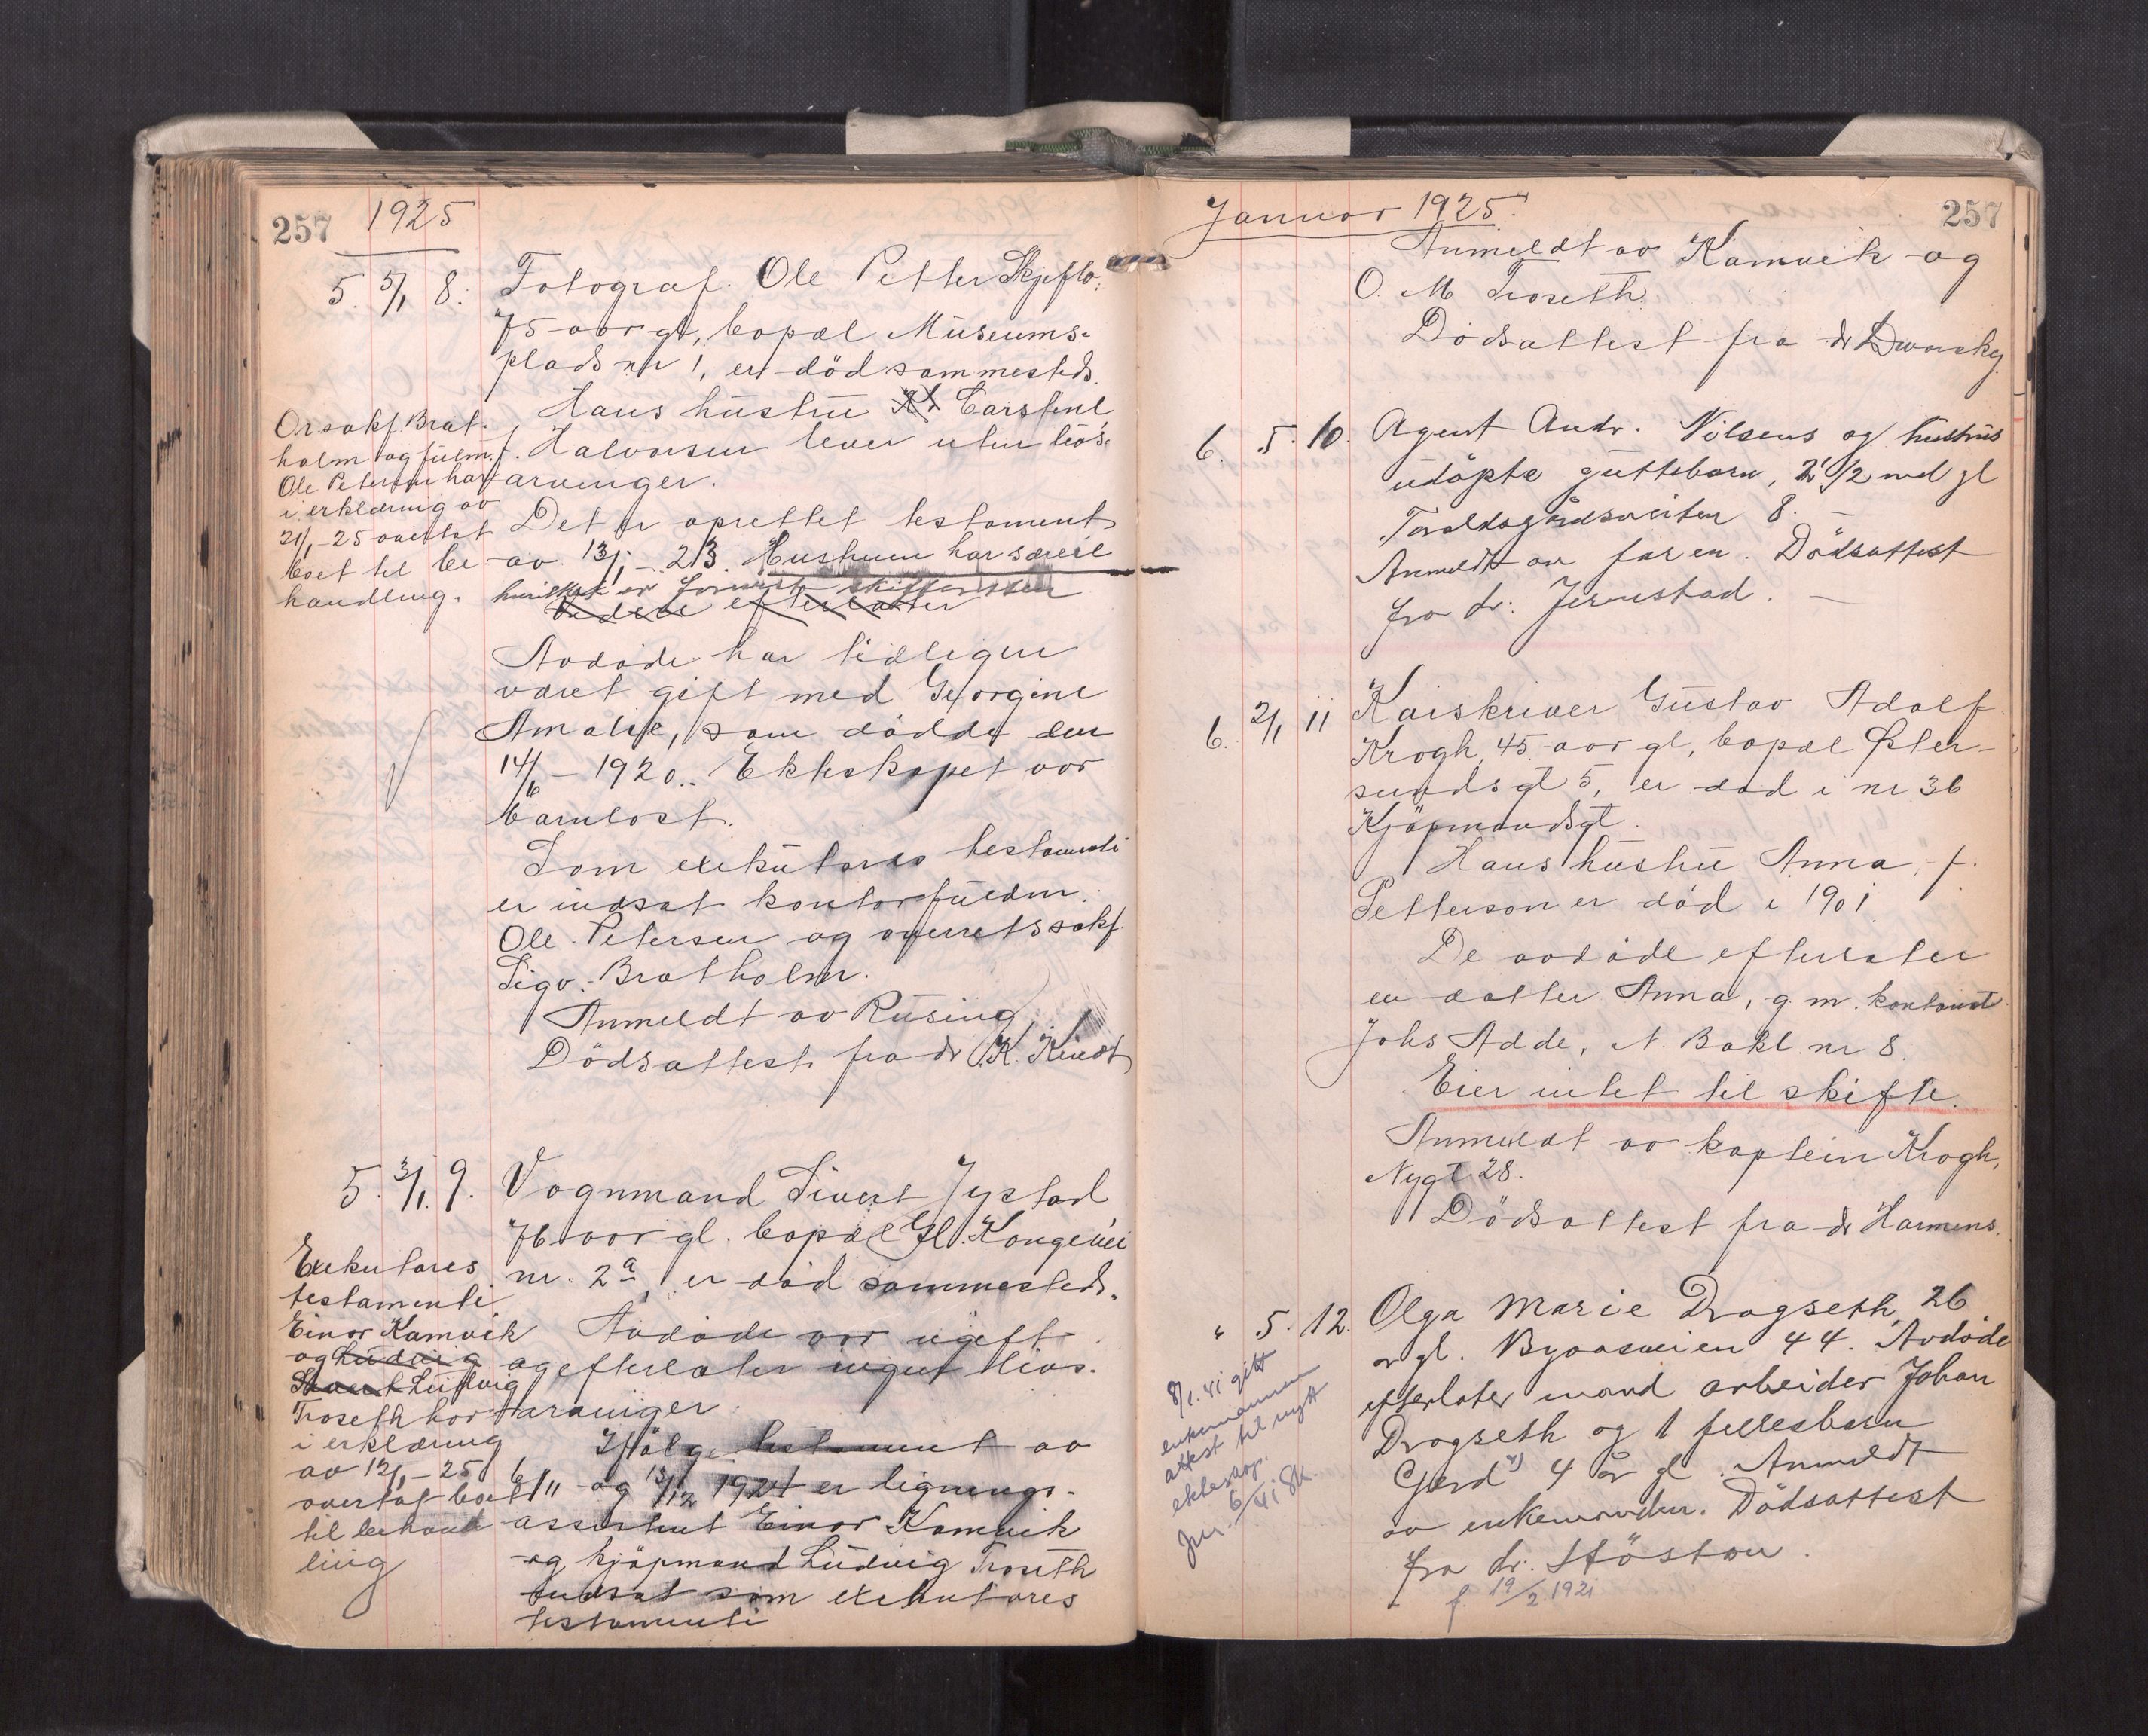 257 1925
5. 5/1 8. Fotograf. Ole Petter Skjeflo.
75 aar gl, bopæl Museums-
plads nr 1, er död sammesteds.
Hans hustru Carstine
f. Halvorsen lever uten livs-
arvinger.
Det er oprettet testament
av 13/1 - 23. Hustruen har særeie
hvilket er forevist skifteretten
Videre efterlater
Avdöde har tidligere
været gift med Georgine
Amalie, som dödde den
14/6 - 1920. Ekteskapet var
barnlöst.
Som exekutores testamenti
er indsat kontorfuldm.
Ole Petersen og overretssakf.
Sigv. Bratholm.
Anmeldt av Rusing
Dödsattest fra dr K. Kindt
Orsakf. Brat-
holm og fulm.
Ole Petersen har
i erklæring av
21/1 - 25 overtat
boet til be-
handling.
5. 3/1. 9. Vognmand Sivert Jystad
76 aar gl. bopæl Gl. Kongevei
nr. 2a, er död sammesteds.
Avdöde var ugift
og efterlater ingen livs-
arvinger.
Ifölge testament av
6/11 og 13/12 1924 er lignings-
assistent Einar Kamvik
og kjöpmand Ludvig Troseth
indsat som exekutores
testamenti
Exekutores
testamenti
Einar Kamvik
og Ludvig
Sivert Ludvig
Troseth har
i erklæring
av 12/1 - 25
overtat boet
til behand
ling
Januar 1925. 257
Anmeldt av Kamvik og
O. M Troseth.
Dödsattest fra dr Dworsky
6. 5. 10. Agent Andr. Nilsens og hustrus
udöpte guttebarn, 2 1/2 md gl
Taraldsgårdsveiten 8.
Anmeldt av faren. Dödsattest
fra dr. Jernstad.
6. 2/1 11 Kaiskriver Gustav Adolf
Krogh, 45 aar gl, bopæl Öster-
sundsgt 5, er död i nr 36
Kjöpmandsgt.
Hans hustru Anna, f.
Petterson er död i 1901.
De avdöde efterlater
en datter Anna, g. m. kontorist
Johs Adde, N. Bakl. nr 8.
Eier intet til skifte.
Anmeldt av kaptein Krogh,
Nygt 28.
Dödsattest fra dr Harmens.
" 5. 12. Olga Marie Dragseth, 26
år gl. Byaasveien 44. Avdöde
efterlater mand arbeider Johan
Dragseth og 1 fællesbarn
Gjerd 4 år gl. Anmeldt
av enkemanden. Dödsattest
fra dr. Stöstad.
f. 19/2 1921
8/1. 41 gitt
enkemannen
attest til nytt
ekteskap.